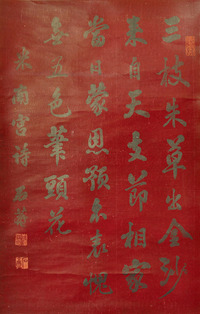 三枝朱草出金沙
來自天支節相家
當日蒙恩預表愧
無五色筆頭花
米南宮詩 石菴